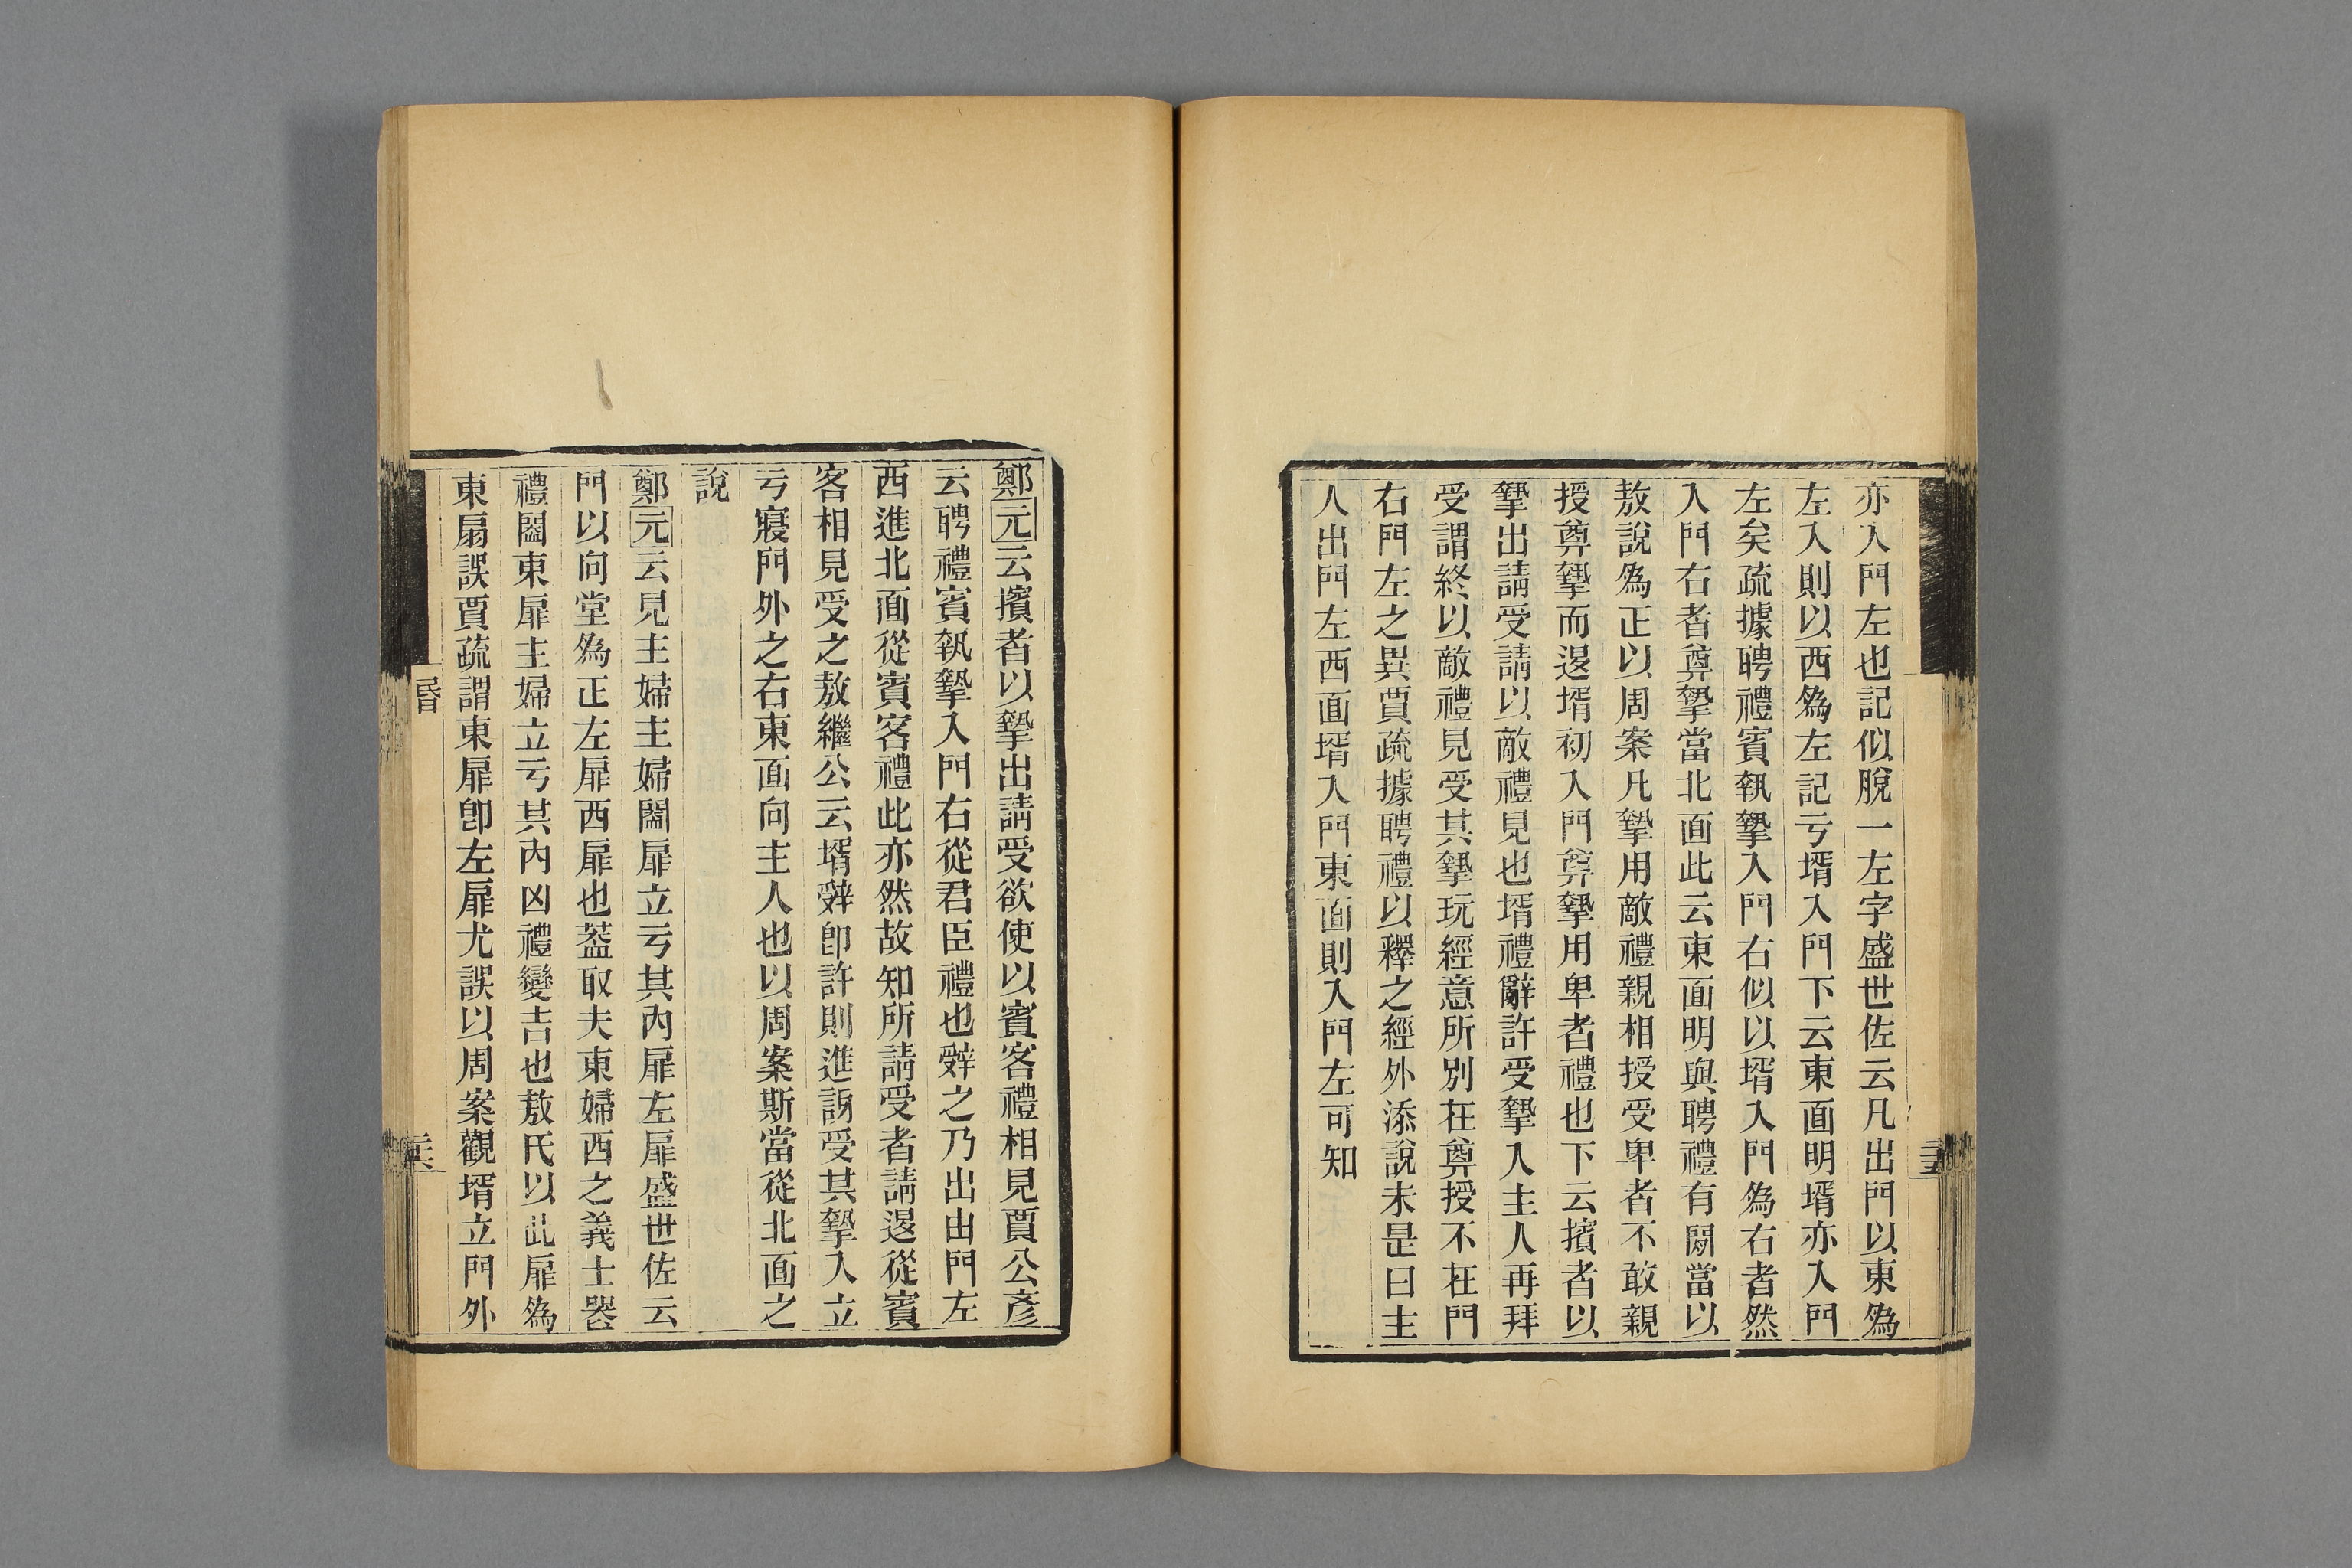 亦入門左也記似脫一左字盛世佐云凡出門以東爲
左入則以西爲左記亏壻入門下云東面明壻亦入門
左矣疏據聘禮賓執摯入門右似以壻入門爲右者然
入門右者奠摯當北面此云東面明與聘禮有閒當以
敖說爲正以周案凡摯用敵禮親相授受卑者不敢親
授奠摯而退壻初入門奠摯用卑者禮也下云擯者以
摯出請受請以敵禮見也壻禮辭許受摯入主人再拜
受謂終以敵禮見受其摯玩經意所別在奠授不在門
右門左之異賈疏據聘禮以釋之經外添說未是曰主
人出門左西面壻入門東面則入門左可知
三五
鄭元云擯者以摯出請受欲使以賓客禮相見賈公彥
云聘禮賓執摯入門右從君臣禮也辤之乃出由門左
西進北面從賓客禮此亦然故知所請受者請退從賓
客相見受之敖繼公云壻辤卽許則進訝受其摯入立
亏寢門外之右東面向主人也以周案斯當從北面之
說
鄭元云見主婦主婦闔扉立亏其內扉左扉盛世佐云
門以向堂爲正左扉西扉也葢取夫東婦西之義士喪
禮闔東扉主婦立亏其內凶禮變吉也敖氏以此扉爲
東扇誤賈疏謂東扉卽左扉尤誤以周案觀壻立門外
昏
三六